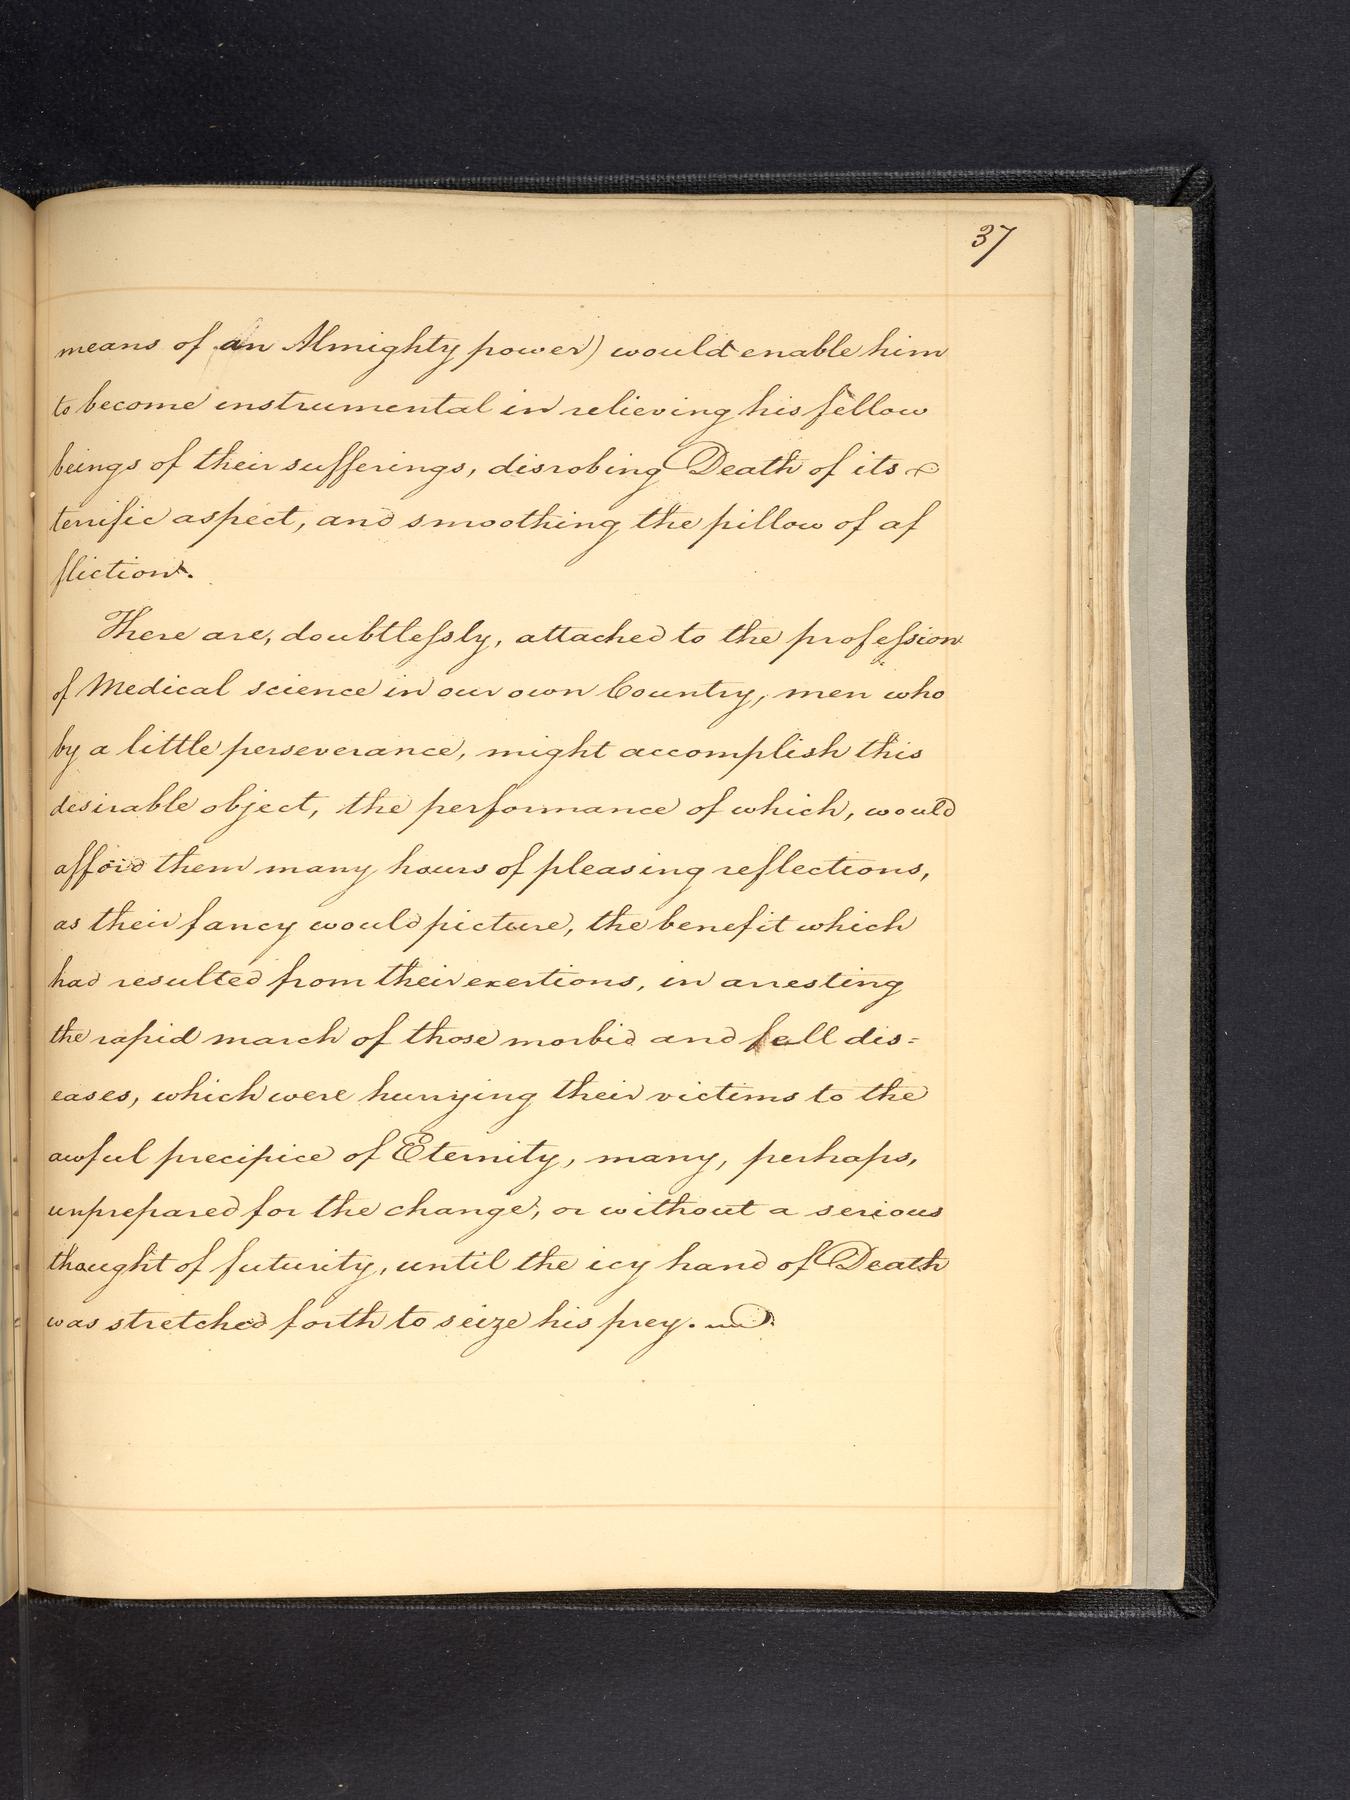 37
means of an Almighty power) would enable him
to become instrumental in relieving his fellow
beings of their sufferings, disrobing Death of its
terrific aspect, and smoothing the pillow of af
fliction.
There are, doubtlessly, attached to the profession
of Medical science in our own Country, men who
by a little perseverance, might accomplish this
desirable object, the performance of which, would
afford them many hours of pleasing reflections,
as their fancy would picture, the benefit which
had resulted from their exertions, in arresting
the rapid march of those morbid and fell dis=
eases, which were hurrying their victims to the
awful precipice of Eternity, many, perhaps,
unprepared for the change, or without a serious
thought of futurity, until the icy hand of Death
was stretched forth to seize his prey.